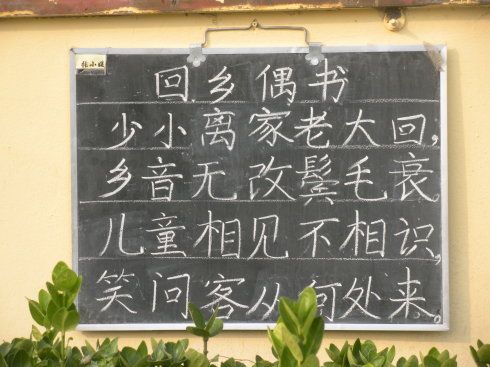 回乡偶书
少小离家老大回，
乡音无改鬓毛衰。
儿童相见不相识，
笑问客从何处来。